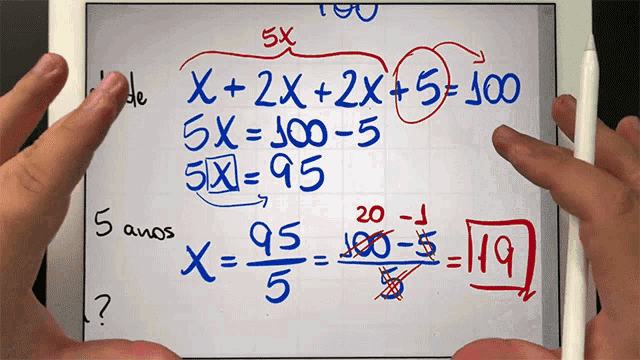 100
5x
x + 2x + 2x + 5 = 100
5x = 100 - 5
5x = 95
20 - 1
5 anos x = 95/5 = 100 - 5/5 = 19
?